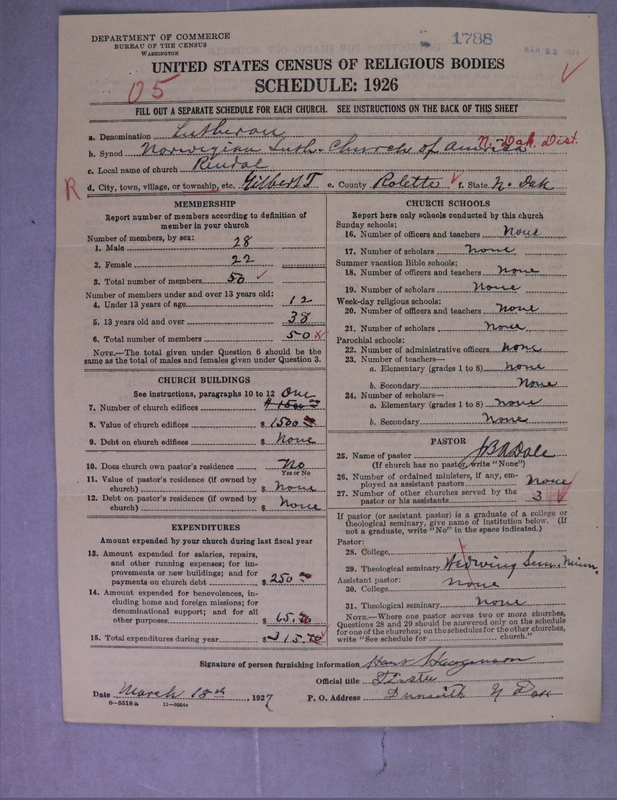 DEPARTMENT OF COMMERCE
BUREAU OF THE CENSUS
WASHINGTON
1788
UNITED STATES CENSUS OF RELIGIOUS BODIES
SCHEDULE: 1926
05
FILL OUT A SEPARATE SCHEDULE FOR EACH CHURCH. SEE INSTRUCTIONS ON THE BACK OF THIS SHEET
a. Denomination Lutheran
b. Synod Norwegian Luth. Church of America N. Dak. Dist.
c. Local name of church Rindal
R d. City, town, village, or township, etc. Gilbert T e. County Rolette f. State N. Dak
MEMBERSHIP
Report number of members according to definition of
member in your church
Number of members, by sex:
1. Male 28
2. Female 22
3. Total number of members 50
Number of members under and over 13 years old:
4. Under 13 years of age 12
5. 13 years old and over 38
6. Total number of members 50
NOTE.—The total given under Question 6 should be
same as the total of males and females given under Question 3.
CHURCH BUILDINGS
See instructions, paragraphs 10 to 12 One
7. Number of church edifices $1500
8. Value of church edifices $ 1500
9. Debt on church edifices $ None
10. Does church own pastor's residence No
Yes or No
11. Value of pastor's residence (if owned by
church) $ None
12. Debt on pastor's residence (if owned by
church) $ None
EXPENDITURES
Amount expended by your church during last fiscal year
13. Amount expended for salaries, repairs,
and other running expenses; for im-
provements or new buildings; and for
payments on church debt $ 250
14. Amount expended for benevolences, in-
cluding home and foreign missions; for
denominational support; and for all
other purposes $ 65.
15. Total expenditures during year $ 315.
CHURCH SCHOOLS
Report here only schools conducted by this church
Sunday schools:
16. Number of officers and teachers None
17. Number of scholars None
Summer vacation Bible schools:
18. Number of officers and teachers None
19. Number of scholars None
Week-day religious schools:
20. Number of officers and teachers None
21. Number of scholars None
Parochial schools:
22. Number of administrative officers None
23. Number of teachers—
a. Elementary (grades 1 to 8) None
b. Secondary None
24. Number of scholars—
a. Elementary (grades 1 to 8) None
b. Secondary None
PASTOR
25. Name of pastor Dale
(If church has no pastor, write "None")
26. Number of ordained ministers, if any, em-
ployed as assistant pastors None
27. Number of other churches served by the
pastor or his assistants 3
If pastor (or assistant pastor) is a graduate of a college or
theological seminary, give name of institution below. (If
not a graduate, write "No" in the space indicated.)
Pastor:
28. College
29. Theological seminary Red Wing Sem. Minn.
Assistant pastor:
30. College None
31. Theological seminary None
NOTE.—Where one pastor serves two or more churches,
Questions 28 and 29 should be answered only on the schedule
for one of the churches; on the schedules for the other churches,
write "See schedule for church."
Signature of person furnishing information Hans Haugenson
Official title Trustee
Date March 18th, 1927 P. O. Address Dunseith N Dak
8—5518 a